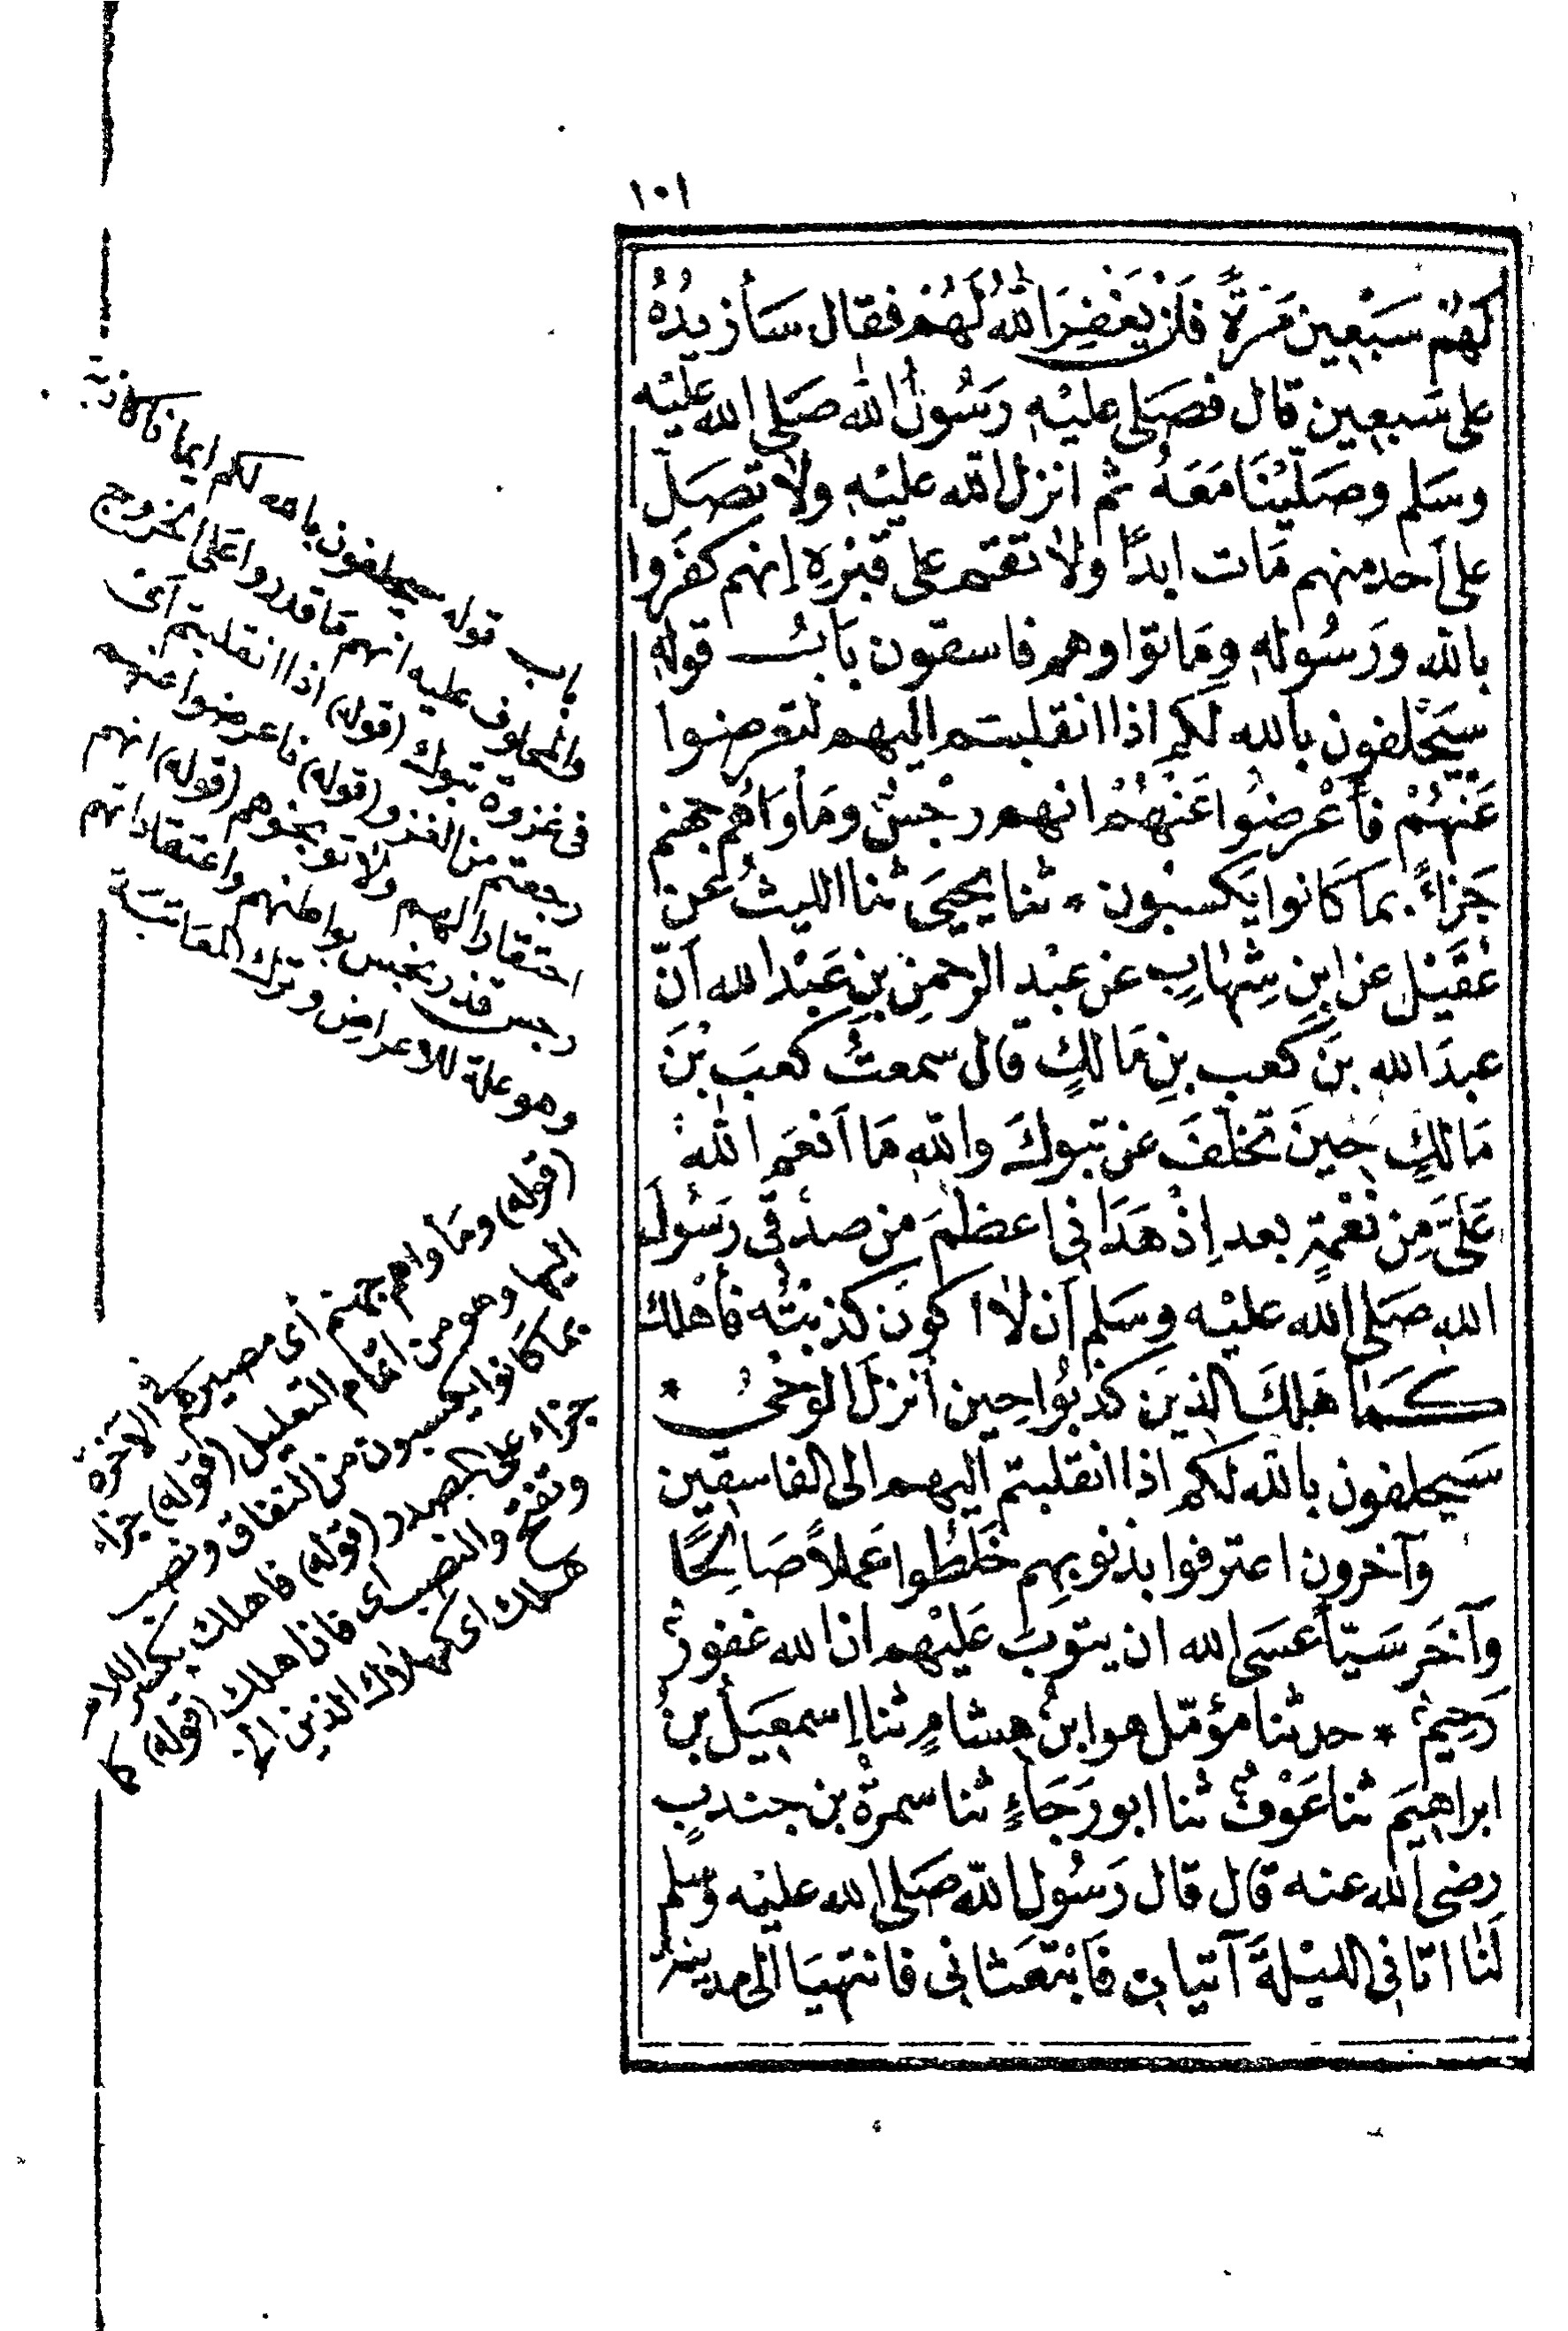 ١٠١
لَهُمْ سَبْعِين مَرَّةً فَلَنْ يَغْفِرَ اللهُ لَهُمْ فقال سَأزيدُهُ
على سَبعِين قال فصَلى عليْهِ رَسُولُ الله صَلى الله عليْه
وسَلم وصَلّيْنَا مَعَهُ ثم انزل الله عليْهِ ولا تصَلّ
على أحد منهم مَات ابدًا ولا تقم على قبْرِهِ إنهم كفَروا
بالله ورَسُولهِ ومَاتوا وهم فاسقون بَابُ قوله
سيَحْلفون بالله لَكم اذا انقلبتم اليهم لتعرضوا
عَنهُمْ فأعْرضُوا عَنْهُمْ انهم رجْسٌ ومَأوَاهُم جهنم
جَزاءً بمَا كَانوا يَكسبُون * ثنا يَحيَى ثنا الليثُ عَن
عُقَيْل عن ابنِ شِهَابٍ عن عبْد الرحمنِ بنِ عَبْد الله أنّ
عبدَ الله بنَ كعب بنِ مَالكٍ قال سمعتُ كعبَ بْنَ
مَالكٍ حِينَ تخلّفَ عن تبوكَ والله مَا أنعَم اللهُ
عَلَيَّ مِن نعْمةٍ بعد اِذْ هَدَانى اعظمَ من صدْقى رَسُولَ
الله صَلى الله عليْه وسَلم أن لا اكونَ كذبْتُه فأهْلك
كَمَا هَلكَ الذينَ كذبُوا حِين أنزلَ الوَحْىُ *
سَيحلفون بالله لَكم اذا انقلبتم اليهم الى الفاسقِين
وآخرون اعترفوا بذنوبهِم خَلَطُوا عَملاً صَالِحًا
وآخَر سَيّأ عسَى الله ان يتوبَ عَليْهم ان الله غفورٌ
رَحِيمٌ * حدثنا مؤمّل هو ابنُ هشامٍ ثنا إسمعِيَلُ بنُ
ابراهِيمَ ثنا عَوْفٌ ثنا ابو رَجَاءٍ ثنا سمرةُ بن جندبٍ
رضى الله عنه قال قال رَسُول الله صَلى الله عليْه وَسلم
لَنَا اتانى الليْلةَ آتيان فَابْتعَثانى فانتهيَا الى مدينةٍ
باب قوله سيحلفون بالله لكم ايمانا كاذبة
والمحلوف عليه انهم مَا قدروا على الخروج
فى غزوة تبوك (قوله) اذا انقلبتم اى
رجعتم من الغزو (قوله) فاعرضوا عنهم
احتقارا لهم ولا توبخوهم (قوله) انهم
رجس قذر نجس بواطنهم واعتقاداتهم
وهو علة للاعراض وترك المعاتبَة
(قوله) ومَأواهم جهنم أى مصيرهم فى الآخرة
اليها وهو من اتمام التعليل (قوله) جزاء
بما كانوا يكسبون من النفاق ونصب
جزاء على المصدر (قوله) فاهلك بكسر اللام
وتفتح والنصب اى فان اهلك (قوله) كما
هلك اى كهلاك الذين الخ